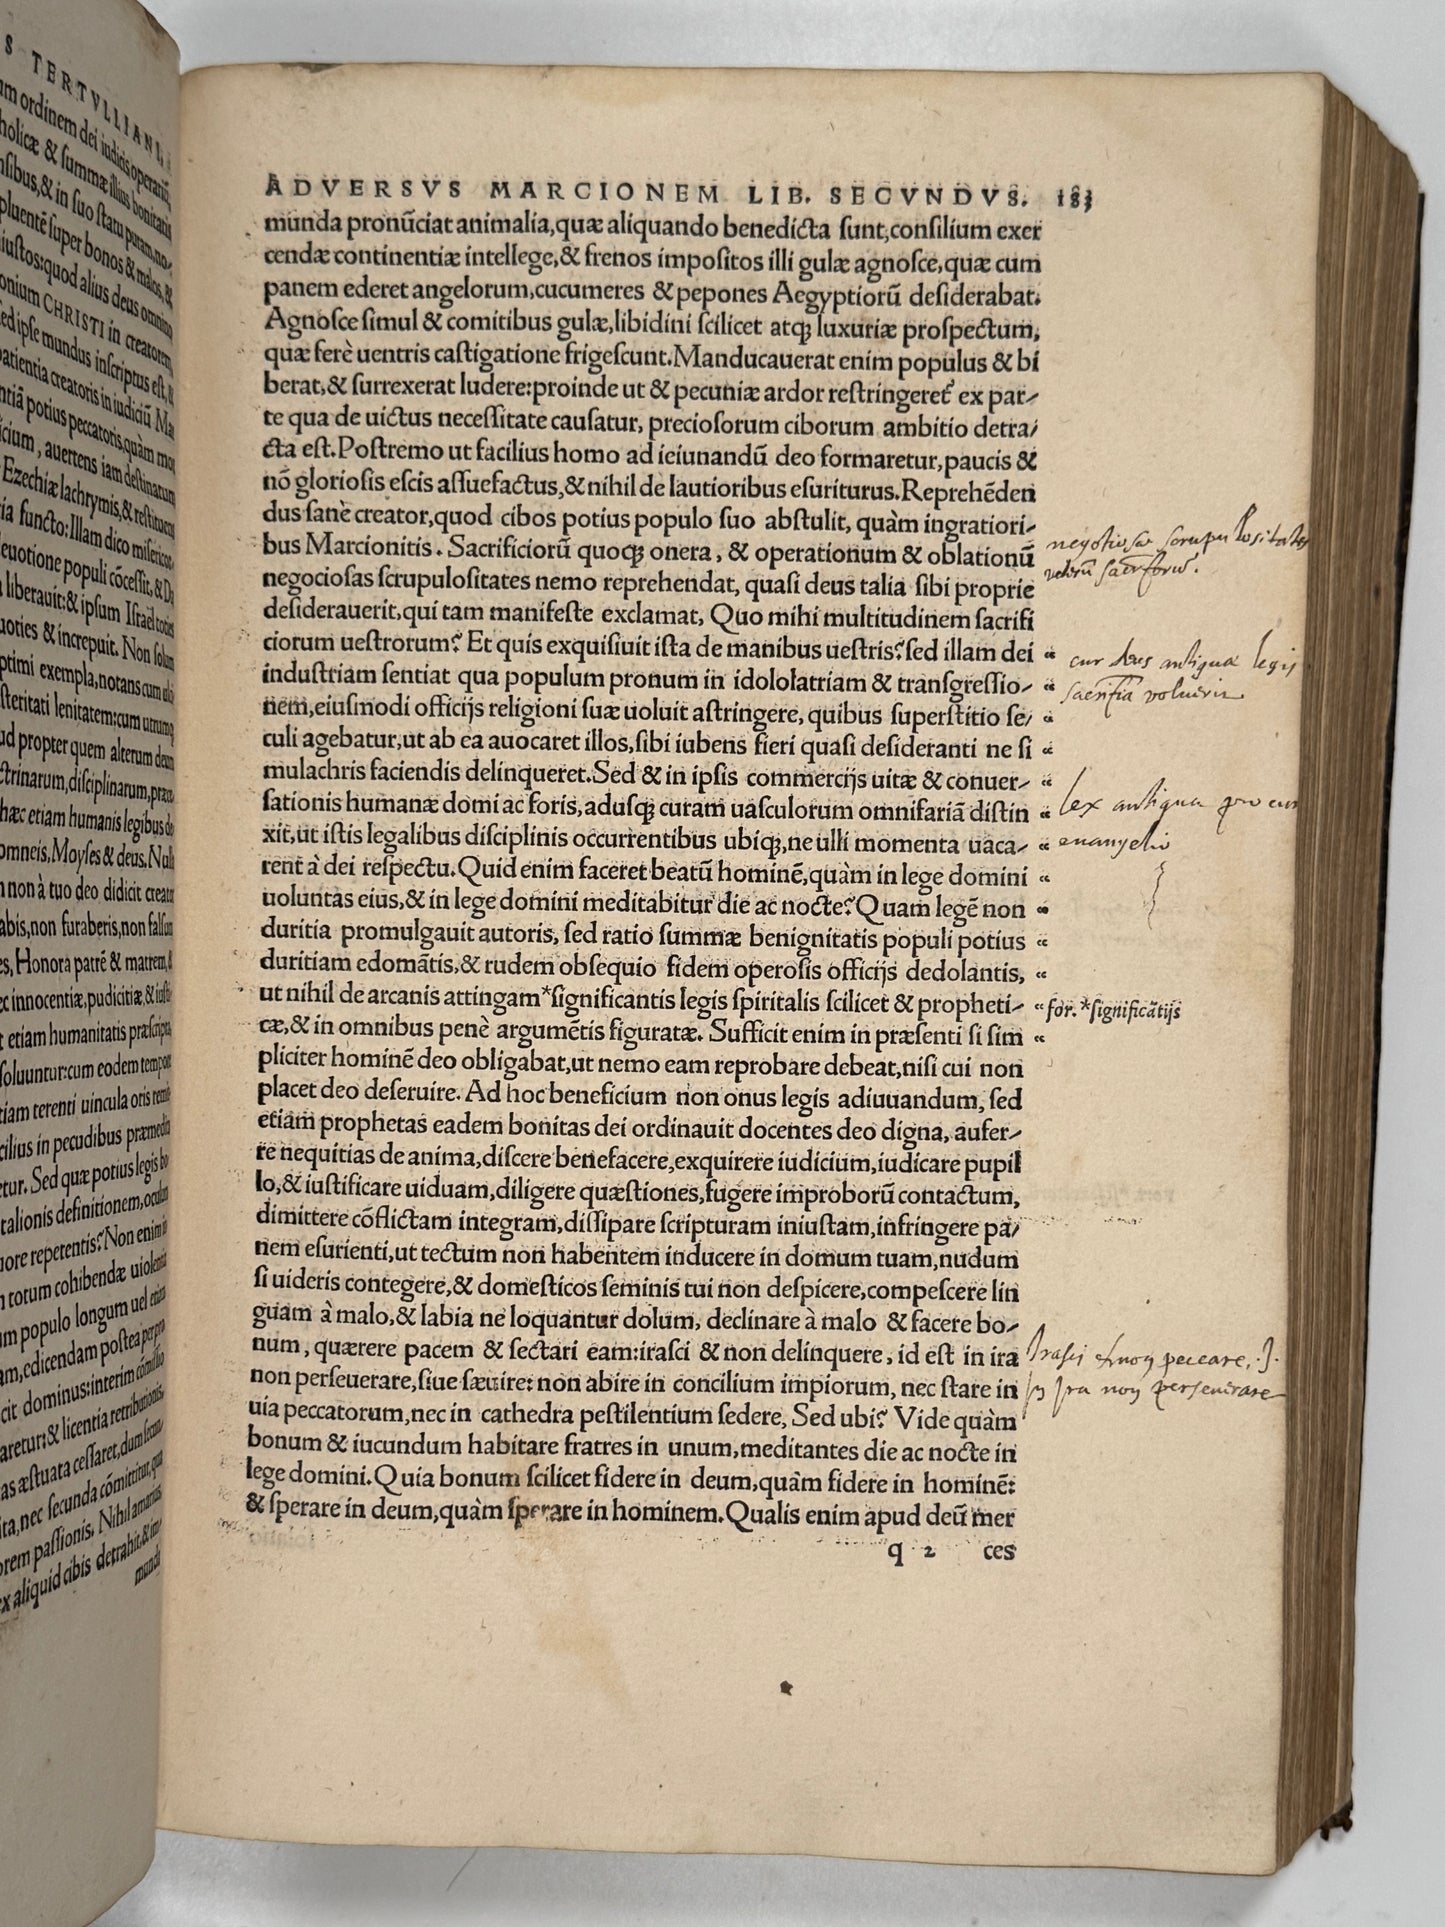 S TERTVLLIANI,
um ordinem dei iudicis operariũ,
holicæ & summæ illius bonitatis
nsibus,& in suo statu puram,no-
pluentẽ super bonos & malos, &
iustos:quod alius deus omnino
onium CHRISTI in creatorem,
sed ipse mundus inscriptus est, &
patientia creatoris in iudiciũ Mar
ntiã potius peccatoris,quàm mor
icium, auertens iam destinatum
Ezechiæ lachrymis,& restituens
ia functo: Illam dico misericor
euotione populi cõcessit,& Da
liberauit:& ipsum Israel toties
uoties & increpuit. Non solum
ptimi exempla,notans cum ali
steritati lenitatem:cum utrumq
ud propter quem alterum deum
ctrinarum,disciplinarum,præce
hæc etiam humanis legibus de
omneis, Moyses & deus. Nul
non à tuo deo didicit creator
abis,non furaberis,non falsum
es, Honora patrẽ & matrem, &
ec innocentiæ,pudicitiæ,& iusti
t etiam humanitatis præscripta
soluuntur:cum eodem tempore
tiam terenti uincula oris remit
cilius in pecudibus præmedita
etur. Sed quæ potius legis bo
talionis definitionem,oculum
uore reperentis? Non enim in
totum cohibendæ uiolentiæ
m populo longum uel etiam
am,edicendam postea per pro
cit dominus:interim cõmissio
aretur:& licentia retributionis
as æstuata cessaret,dum secun
ta,nec secunda cõmittitur,qua
orem passionis. Nihil amarius
ex aliquid cibis detrahit,& im/
munda
ADVERSVS MARCIONEM LIB. SECVNDVS. 183
munda pronũciat animalia,quæ aliquando benedicta sunt,consilium exer
cendæ continentiæ intellege,& frenos impositos illi gulæ agnosce,quæ cum
panem ederet angelorum,cucumeres & pepones Aegyptiorũ desiderabat.
Agnosce simul & comitibus gulæ,libidini scilicet atq; luxuriæ prospectum,
quæ ferè uentris castigatione frigescunt.Manducauerat enim populus & bi
berat,& surrexerat ludere:proinde ut & pecuniæ ardor restringeret̃ ex par-
te qua de uictus necessitate causatur, preciosorum ciborum ambitio detra/
cta est.Postremo ut facilius homo ad ieiunandũ deo formaretur,paucis &
nõ gloriosis escis assuefactus,& nihil de lautioribus esuriturus.Reprehẽden
dus sanè creator,quod cibos potius populo suo abstulit, quàm ingratiori-
bus Marcionitis. Sacrificiorũ quoq; onera, & operationum & oblationũ
negociosas scrupulositates nemo reprehendat, quasi deus talia sibi proprie
desiderauerit,qui tam manifeste exclamat, Quo mihi multitudinem sacrifi
ciorum uestrorum? Et quis exquisiuit ista de manibus uestris?sed illam dei “
industriam sentiat qua populum pronum in idololatriam & transgressio- “
nem,eiusmodi officijs religioni suæ uoluit astringere, quibus superstitio se/ “
culi agebatur,ut ab ea auocaret illos,sibi iubens fieri quasi desideranti ne si “
mulachris faciendis delinqueret.Sed & in ipsis commercijs uitæ & conuer- “
sationis humanæ domi ac foris, adusq; curam uasculorum omnifariã distin “
xit,ut istis legalibus disciplinis occurrentibus ubiq;,ne ulli momenta uaca- “
rent à dei respectu. Quid enim faceret beatũ hominẽ,quàm in lege domini “
uoluntas eius,& in lege domini meditabitur die ac nocte? Quam legẽ non “
duritia promulgauit autoris, sed ratio summæ benignitatis populi potius “
duritiam edomãtis,& rudem obsequio fidem operosis officijs dedolantis, “
ut nihil de arcanis attingam*significantis legis spiritalis scilicet & propheti- “
for. *significãtijs
cæ,& in omnibus penè argumẽtis figuratæ. Sufficit enim in præsenti si sim “
pliciter hominẽ deo obligabat,ut nemo eam reprobare debeat,nisi cui non
placet deo deseruire. Ad hoc beneficium non onus legis adiuuandum, sed
etiam prophetas eadem bonitas dei ordinauit docentes deo digna, aufer-
re nequitias de anima,discere benefacere,exquirere iudicium,iudicare pupil
lo,& iustificare uiduam,diligere quæstiones,fugere improborũ contactum,
dimittere cõflictam integram,dissipare scripturam iniustam,infringere pa/
nem esurienti,ut tectum non habentem inducere in domum tuam,nudum
si uideris contegere,& domesticos seminis tui non despicere,compescere lin
guam à malo,& labia ne loquantur dolum, declinare à malo & facere bo-
num, quærere pacem & sectari eam:irasci & non delinquere, id est in ira
non perseuerare,siue sæuire: non abire in concilium impiorum, nec stare in
uia peccatorum,nec in cathedra pestilentium sedere, Sed ubi? Vide quàm
bonum & iucundum habitare fratres in unum,meditantes die ac nocte in
lege domini. Quia bonum scilicet fidere in deum,quàm fidere in hominẽ:
& sperare in deum,quàm sperare in hominem. Qualis enim apud deũ mer
q 2 ces
negotiosæ scrupulositates
veterũ sacrificiorũ.
cur deus antiquæ legis
sacrificia voluerit
lex antiqua pro
euangelio
Irasci & non peccare, .i.
in ira non perseuerare